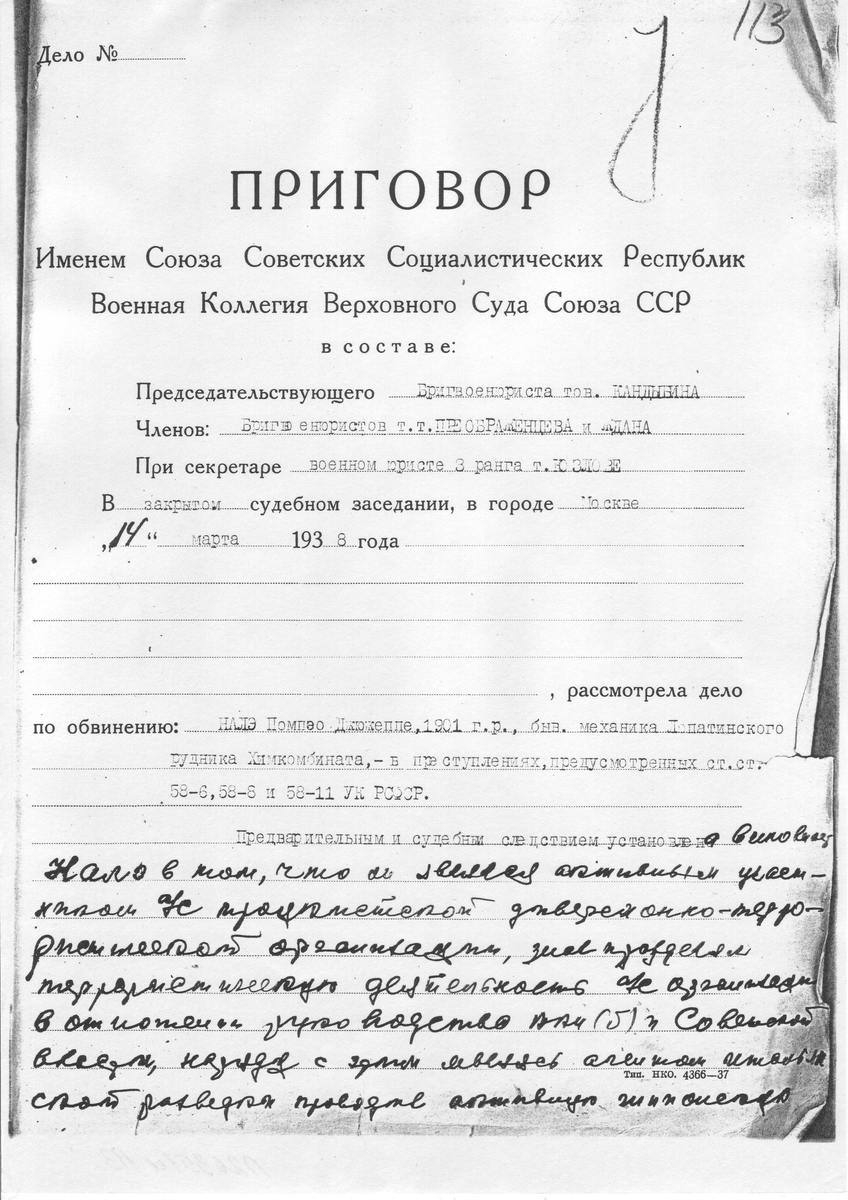 113
Дело №
ПРИГОВОР
Именем Союза Советских Социалистических Республик
Военная Коллегия Верховного Суда Союза ССР
в составе:
Председательствующего Бригвоенюриста тов. КАНДЫБИНА
Членов: Бригвоенюристов т.т.ПРЕОБРАЖЕНЦЕВА и ЖДАНА
При секретаре военном юристе 3 ранга т.КОЗЛОВЕ
В закрытом судебном заседании, в городе Москве
„14“ марта 1938 года
, рассмотрела дело
по обвинению: НАЛЭ Помпэо Джюжеппе,1901 г.р., быв. механика Лопатинского
рудника Химкомбината,- в преступлениях,предусмотренных ст.ст.
58-6,58-8 и 58-11 УК РСФСР.
Предварительным и судебным следствием установлена виновность
Налэ в том, что он являлся активным участ-
ником а/с троцкистской диверсионно-терро-
ристической организации,
террористическую деятельность а/с организации
в отношении руководства ВКП(б) и Советской
власти, наряду с этим являясь агентом итальян
ской разведки проводил активную шпионскую
Тип. НКО. 4366—37